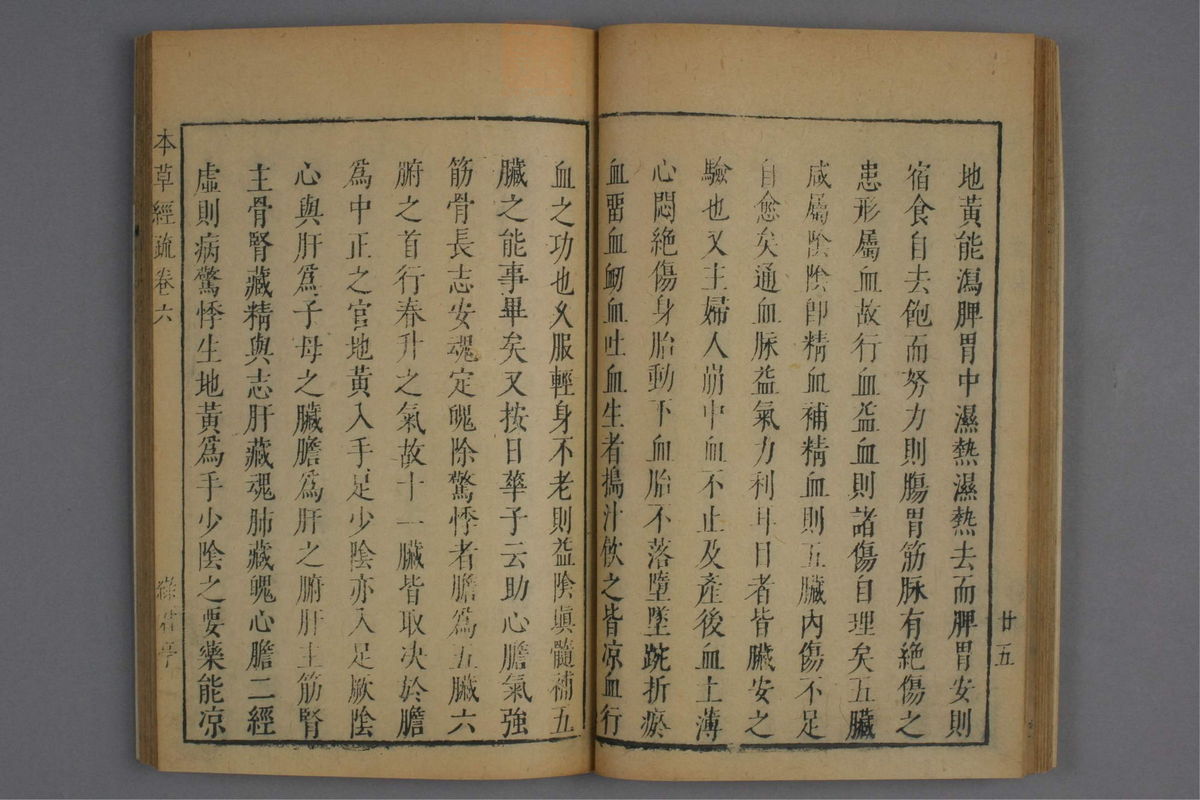 地黃能瀉脾胃中濕熱濕熱去而脾胃安則
宿食自去飽而努力則腸胃筋脉有絶傷之
患形屬血故行血益血則諸傷自理矣五臟
咸屬陰陰卽精血補精血則五臟內傷不足
自愈矣通血脉益氣力利耳目者皆臟安之
驗也又主婦人崩中血不止及產後血上薄
心悶絶傷身胎動下血胎不落墮墜踠折瘀
血畱血衂血吐血生者搗汁飮之皆凉血行
廿五
血之功也久服輕身不老則益陰眞髓補五
臟之能事畢矣又按日華子云助心膽氣強
筋骨長志安魂定魄除驚悸者膽爲五臟六
腑之首行春升之氣故十一臟皆取决於膽
爲中正之官地黃入手足少陰亦入足厥陰
心與肝爲子母之臟膽爲肝之腑肝主筋腎
主骨腎藏精與志肝藏魂肺藏魄心膽二經
虛則病驚悸生地黃爲手少陰之要藥能凉
本草經疏卷六
綠君亭